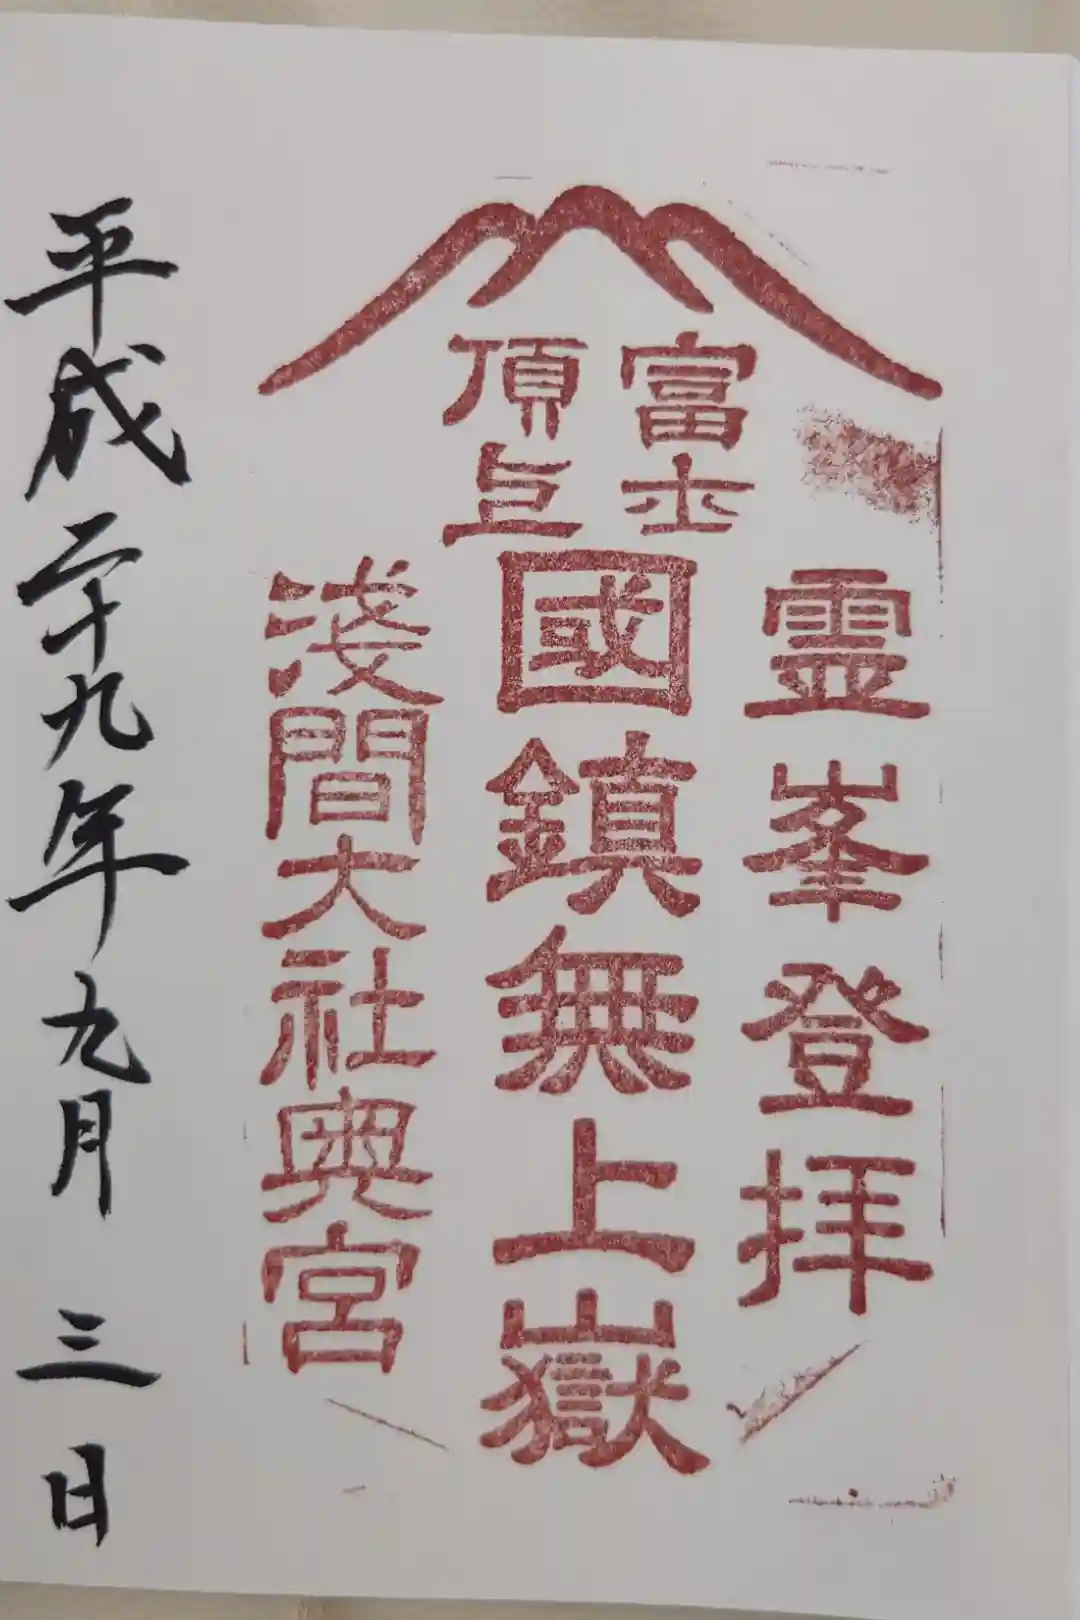 富士
頂上
霊峯登拝
國鎮無上嶽
淺間大社奥宮
平成二十九年九月三日